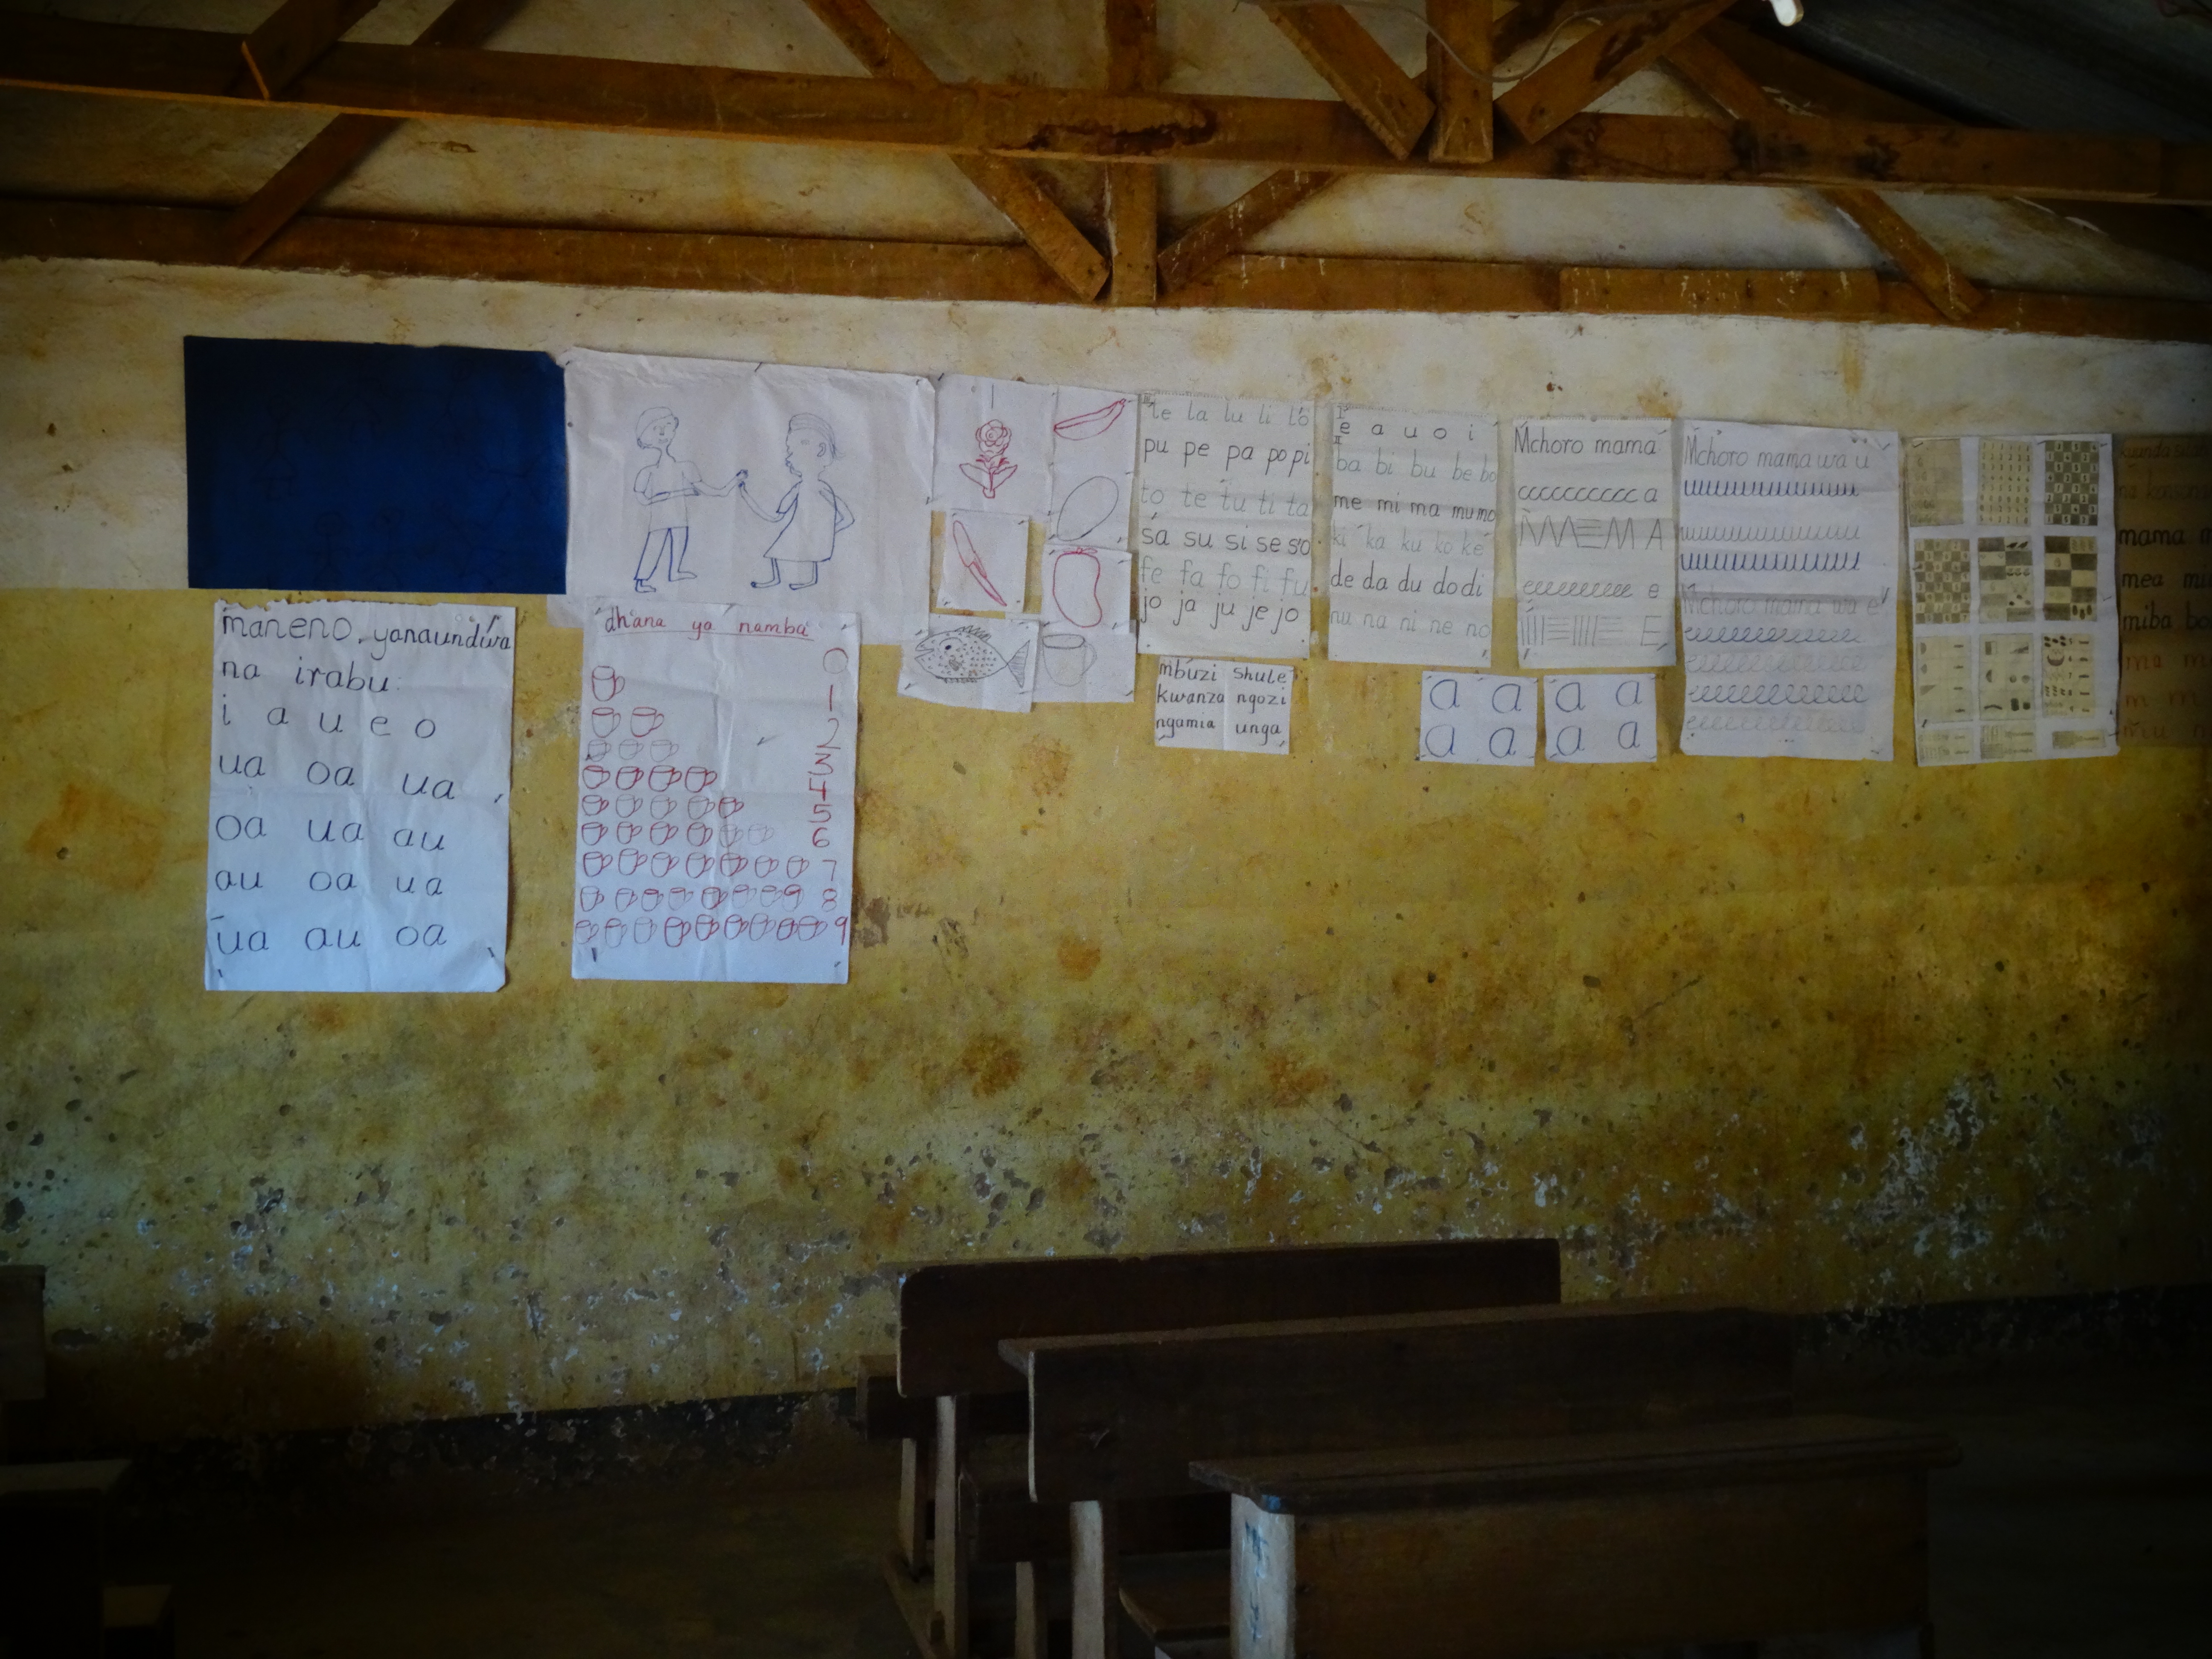 maneno yanaundwa
na irabu
i a u e o
ua oa ua
oa ua au
au oa ua
ua au oa
dhana ya namba
0
1
2
3
4
5
6
7
8
9
le la lu li lo
pu pe pa po pi
to te tu ti ta
sa su si se so
fe fa fo fi fu
jo ja ju je jo
mbuzi shule
kwanza ngozi
ngamia unga
e a u o i
ba bi bu be bo
me mi ma mu mo
ki ka ku ko ke
de da du do di
nu na ni ne no
a a
a a
a a
a a
Mchoro mama
ccccccccccc a
M A
eeeeeeeee e
E
Mchoro mama wa u
Mchoro mama wa e
mama
mea
miba